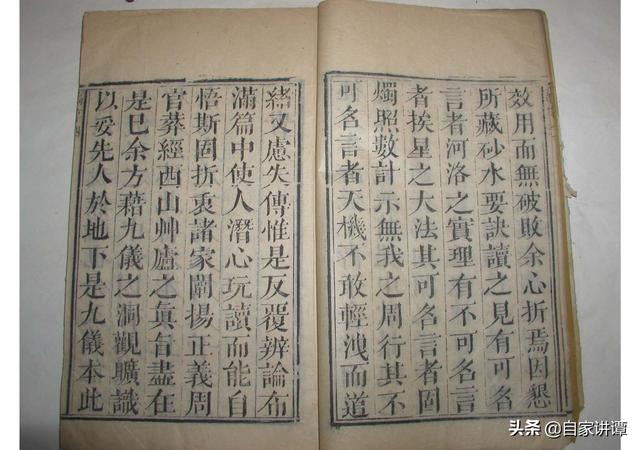 效用而無破敗余心折焉因懇
所藏砂水要訣讀之見有可名
言者河洛之實理有不可名言
者挨星之大法其可名言者固
燭照數計示無我之周行其不
可名言者天機不敢輕洩而道
緒又慮失傳惟是反覆辨論布
滿篇中使人潛心玩讀而能自
悟斯固折衷諸家闡揚正義周
官葬經西山艸廬之眞旨盡在
是已余方藉九儀之洞觀曠識
以妥先人於地下是九儀本此
头条 @自家讲谭